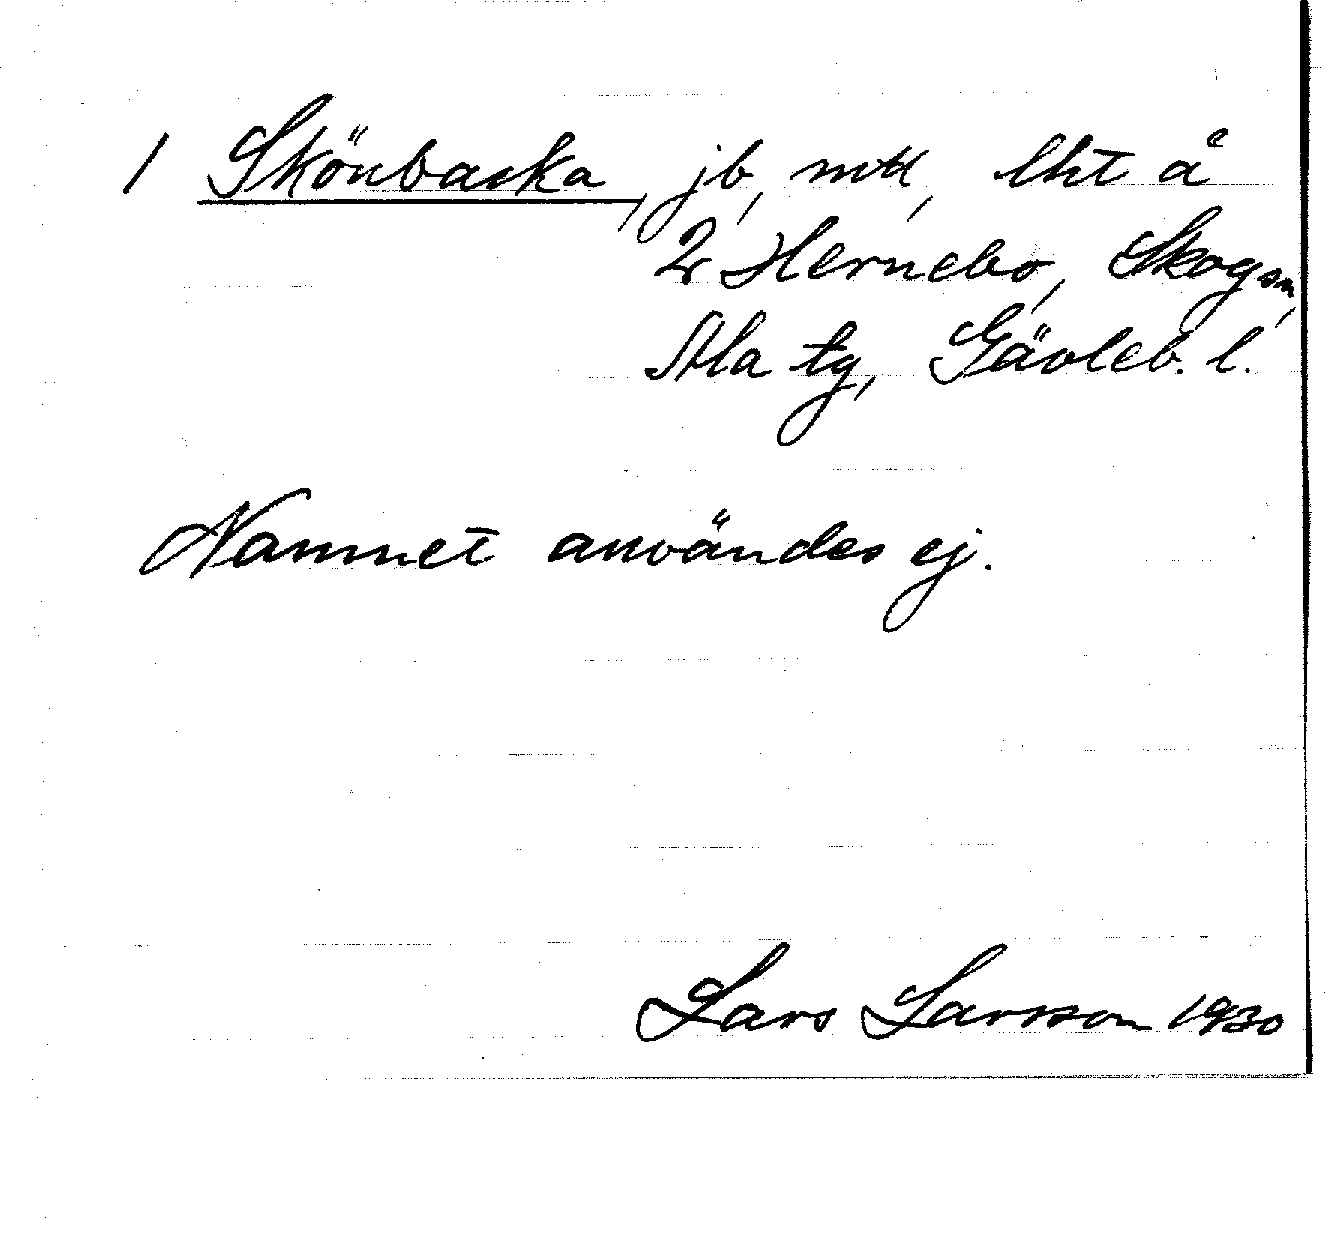 1 Skönbacka, jb, mtl, lht å
2 Hernebo, Skog sn,
Ala tg, Gävleb. l.
Namnet användes ej.
Lars Larsson 1930